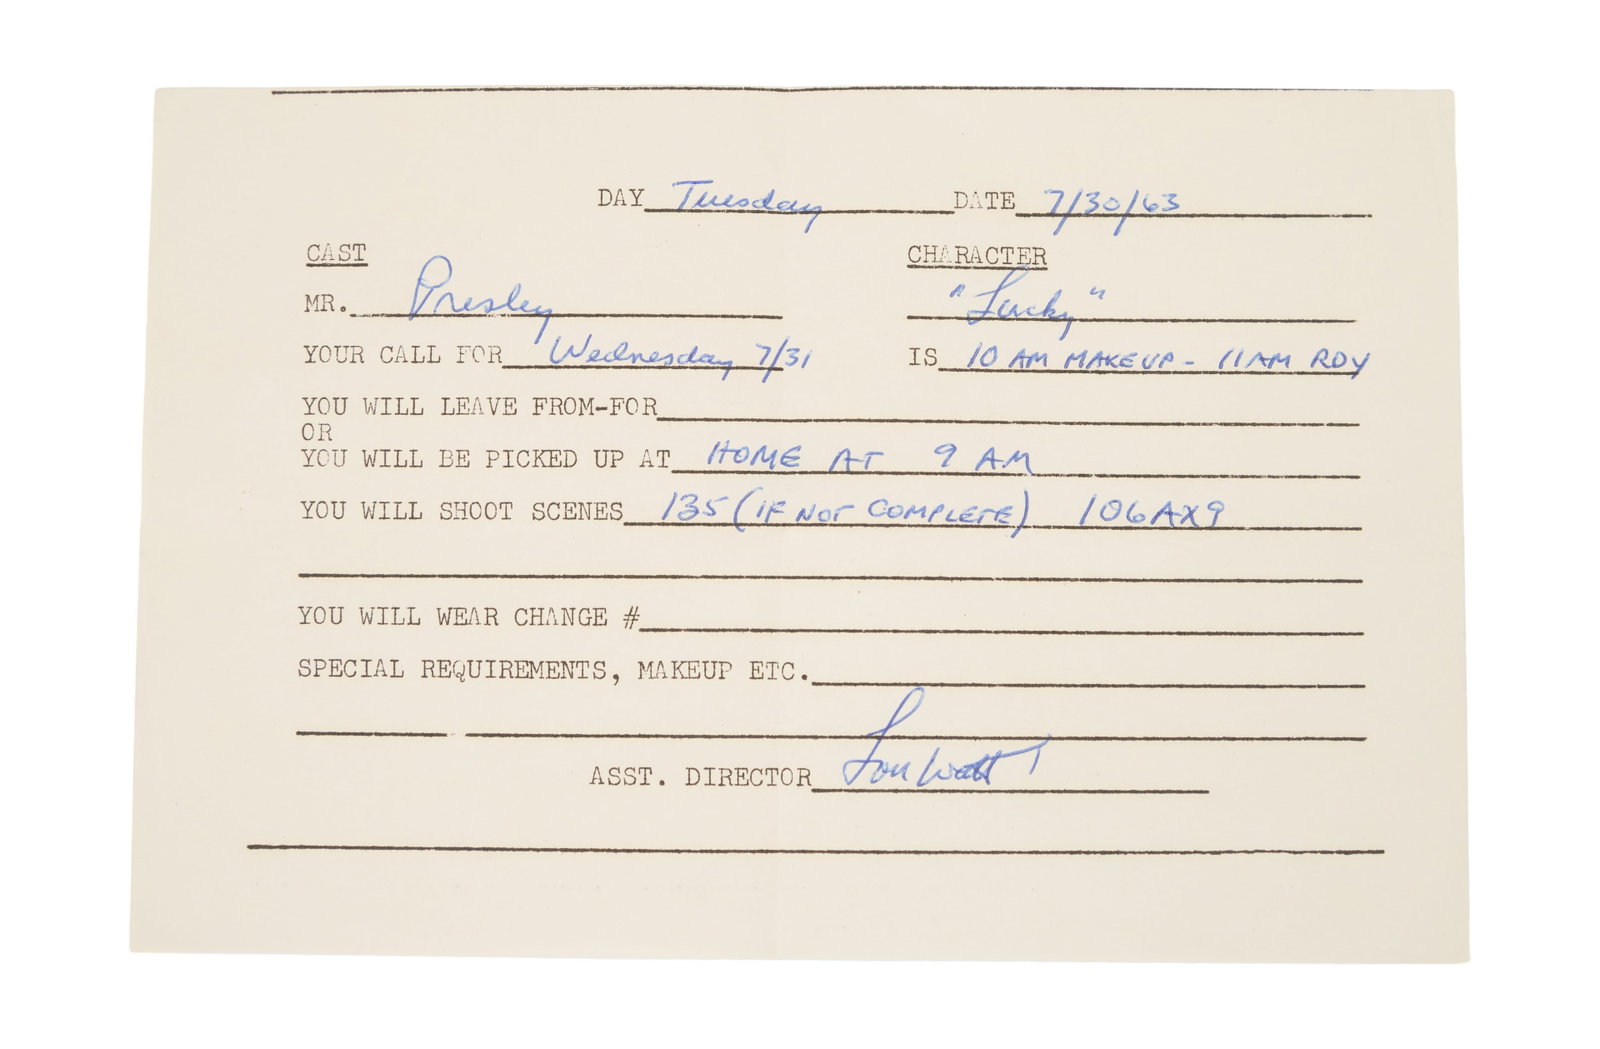 DAY Tuesday DATE 7/30/63
CAST CHARACTER
MR. Presley "Lucky"
YOUR CALL FOR Wednesday 7/31 IS 10 AM MAKEUP - 11 AM RDY
YOU WILL LEAVE FROM-FOR
OR
YOU WILL BE PICKED UP AT HOME AT 9 AM
YOU WILL SHOOT SCENES 135 (IF NOT COMPLETE) 106AX9
YOU WILL WEAR CHANGE #
SPECIAL REQUIREMENTS, MAKEUP ETC.
ASST. DIRECTOR